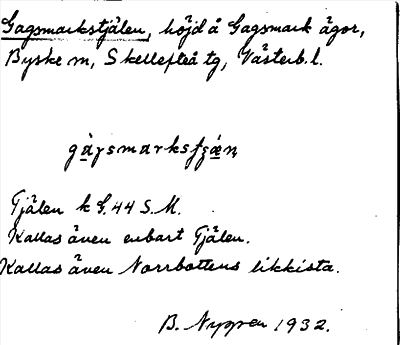 Gagsmarkstjälen, höjd å Gagsmark ägor,
Byske sn, Skellefteå tg, Västerb. l.
Tjälen k g. 44 S.M.
Kallas även enbart Tjälen.
Kallas även Norrbottens likkista.
B. Nygren 1932.